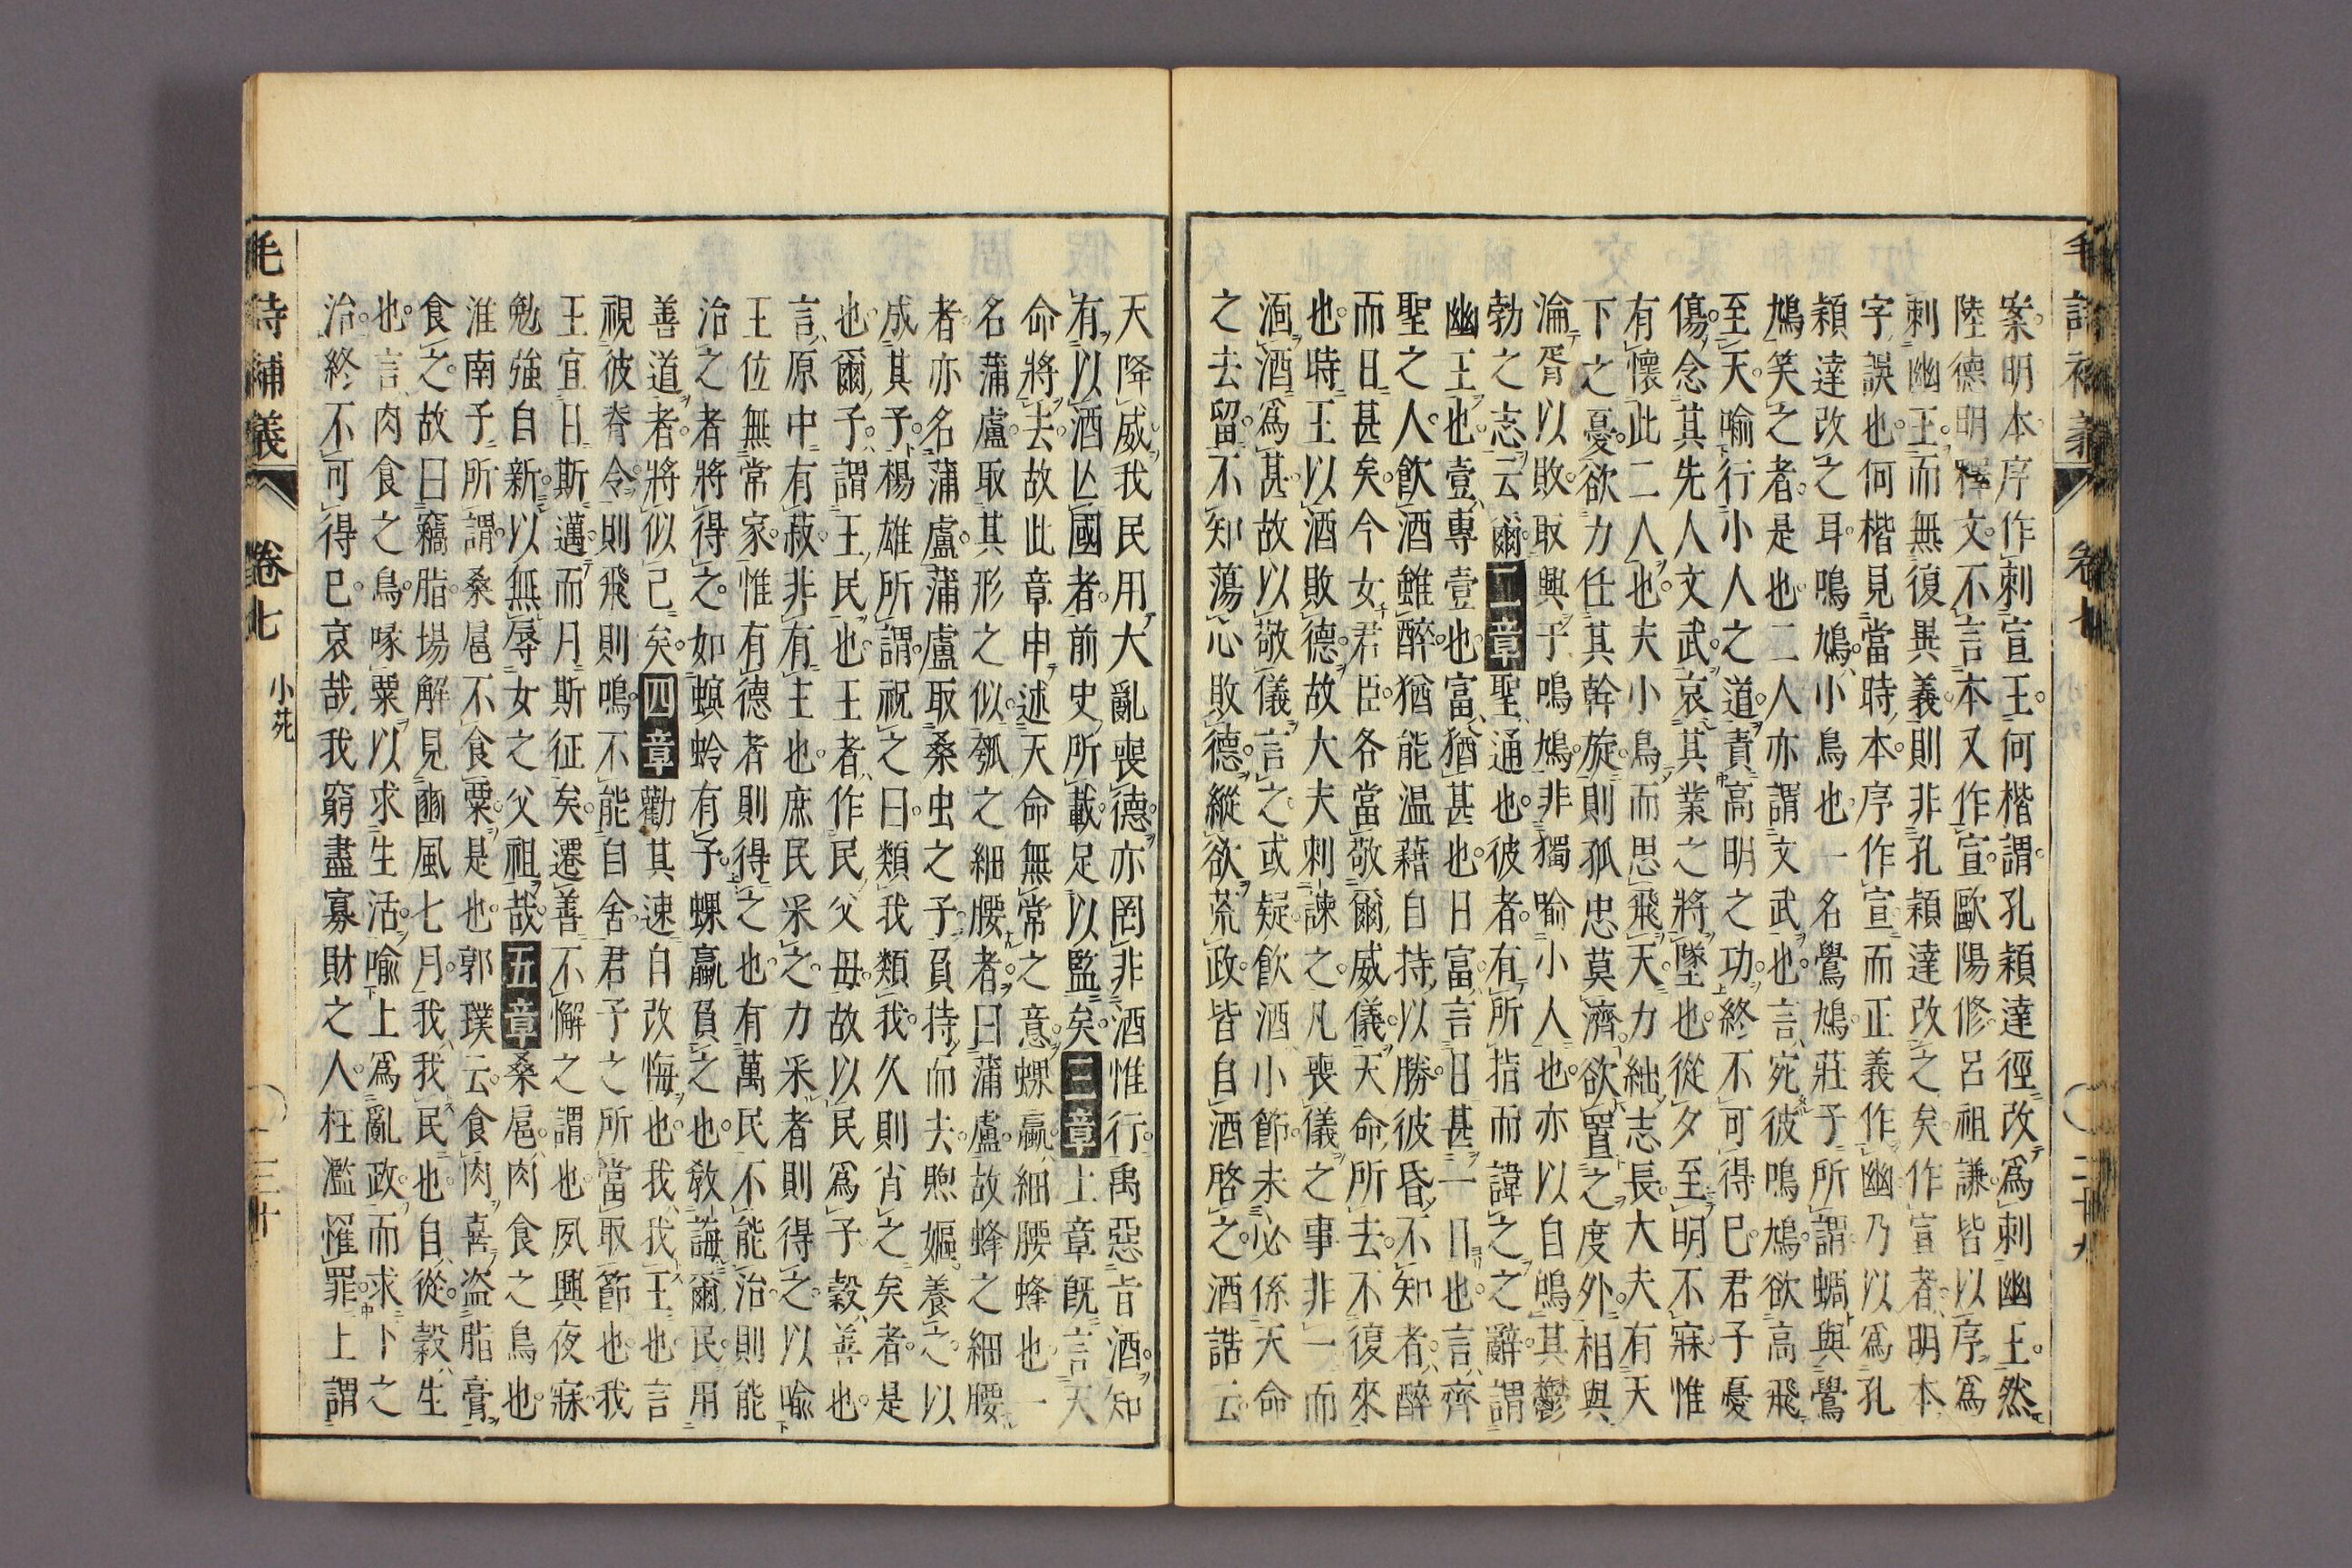 案明本序作刺宣王何楷謂孔穎達徑改爲刺幽王然
陸德明釋文不言本又作宣歐陽修呂祖謙皆以序爲
刺幽王而無復異義則非孔穎達改之矣作宣者明本
字誤也何楷見當時本序作宣而正義作幽乃以爲孔
穎達改之耳鳴鳩小鳥也一名鷽鳩莊子所謂蜩與鷽
鳩笑之者是也二人亦謂文武也言宛彼鳴鳩欲高飛
至天喻行小人之道責高明之功終不可得巳君子憂
傷念其先人文武哀其業之將墜也從夕至明不寐惟
有懷此二人也夫小鳥而思飛天力絀志長大夫有天
下之憂欲力任其幹旋則孤忠莫濟欲置之度外相與
淪胥以敗取興于鳴鳩非獨喻小人也亦以自鳴其鬱
勃之志云爾二章聖通也彼者有所指而諱之之辭謂
幽王也壹專壹也富猶甚也日富言日甚一日也言齊
聖之人飲酒雖醉猶能温藉自持以勝彼昏不知者醉
而日甚矣今女君臣各當敬爾威儀天命所去不復來
也時王以酒敗德故大夫刺諫之凡喪儀之事非一而
湎酒爲甚故以敬儀言之或疑飲酒小節未必係天命
之去留不知蕩心敗德縱欲荒政皆自酒啓之酒誥云
天降威我民用大亂喪德亦罔非酒惟行禹惡旨酒知
有以酒亾國者前史所載足以監矣三章上章旣言天
命將去故此章申述天命無常之意蜾蠃細腰蜂也一
名蒲盧取其形之似瓠之細腰者曰蒲盧故蜂之細腰
者亦名蒲盧蒲盧取桑虫之子負持而去煦嫗養之以
成其子楊雄所謂祝之曰類我類我久則肖之矣者是
也爾子謂王民也王者作民父母故以民爲子穀善也
言原中有菽非有主也庶民采之力采者則得之以喻
王位無常家惟有德者則得之也有萬民不能治則能
治之者將得之如螟蛉有子蜾蠃負之也敎誨爾民用
善道者將似己矣四章勸其速自改悔也我我王也言
視彼脊令則飛則鳴不能自舍君子之所當取節也我
王宜日斯邁而月斯征矣遷善不懈之謂也夙興夜寐
勉強自新以無辱女之父祖哉五章桑扈肉食之鳥也
淮南子所謂桑扈不食粟是也郭璞云食肉喜盜脂膏
食之故曰竊脂場解見豳風七月我我民也自從穀生
也言肉食之鳥啄粟以求生活喻上爲亂政而求下之
治終不可得巳哀哉我窮盡寡財之人枉濫罹罪上謂
毛詩補義 卷七 小苑 三十